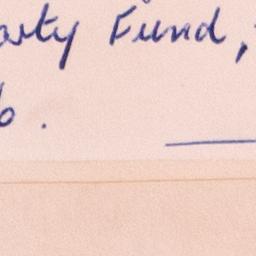 arty Fund,
6.